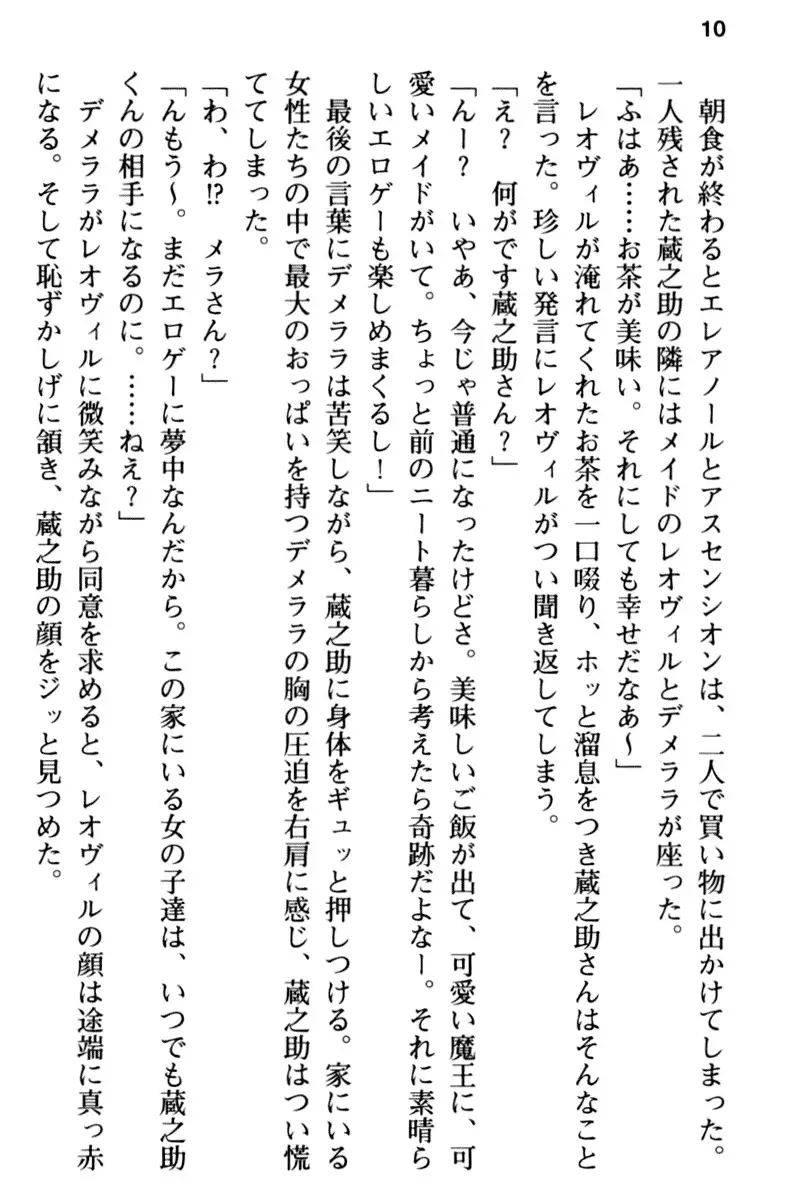 10
朝食が終わるとエレアノールとアスセンシオンは、二人で買い物に出かけてしまった。
一人残された蔵之助の隣にはメイドのレオヴィルとデメララが座った。
「ふはあ……お茶が美味い。それにしても幸せだなあ～」
レオヴィルが淹れてくれたお茶を一口啜り、ホッと溜息をつき蔵之助さんはそんなこと
を言った。珍しい発言にレオヴィルがつい聞き返してしまう。
「え？　何がです蔵之助さん？」
「んー？　いやあ、今じゃ普通になったけどさ。美味しいご飯が出て、可愛い魔王に、可
愛いメイドがいて。ちょっと前のニート暮らしから考えたら奇跡だよなー。それに素晴ら
しいエロゲーも楽しめまくるし！」
最後の言葉にデメララは苦笑しながら、蔵之助に身体をギュッと押しつける。家にいる
女性たちの中で最大のおっぱいを持つデメララの胸の圧迫を右肩に感じ、蔵之助はつい慌
ててしまった。
「わ、わ!?　メラさん？」
「んもう～。まだエロゲーに夢中なんだから。この家にいる女の子達は、いつでも蔵之助
くんの相手になるのに。……ねえ？」
デメララがレオヴィルに微笑みながら同意を求めると、レオヴィルの顔は途端に真っ赤
になる。そして恥ずかしげに頷き、蔵之助の顔をジッと見つめた。